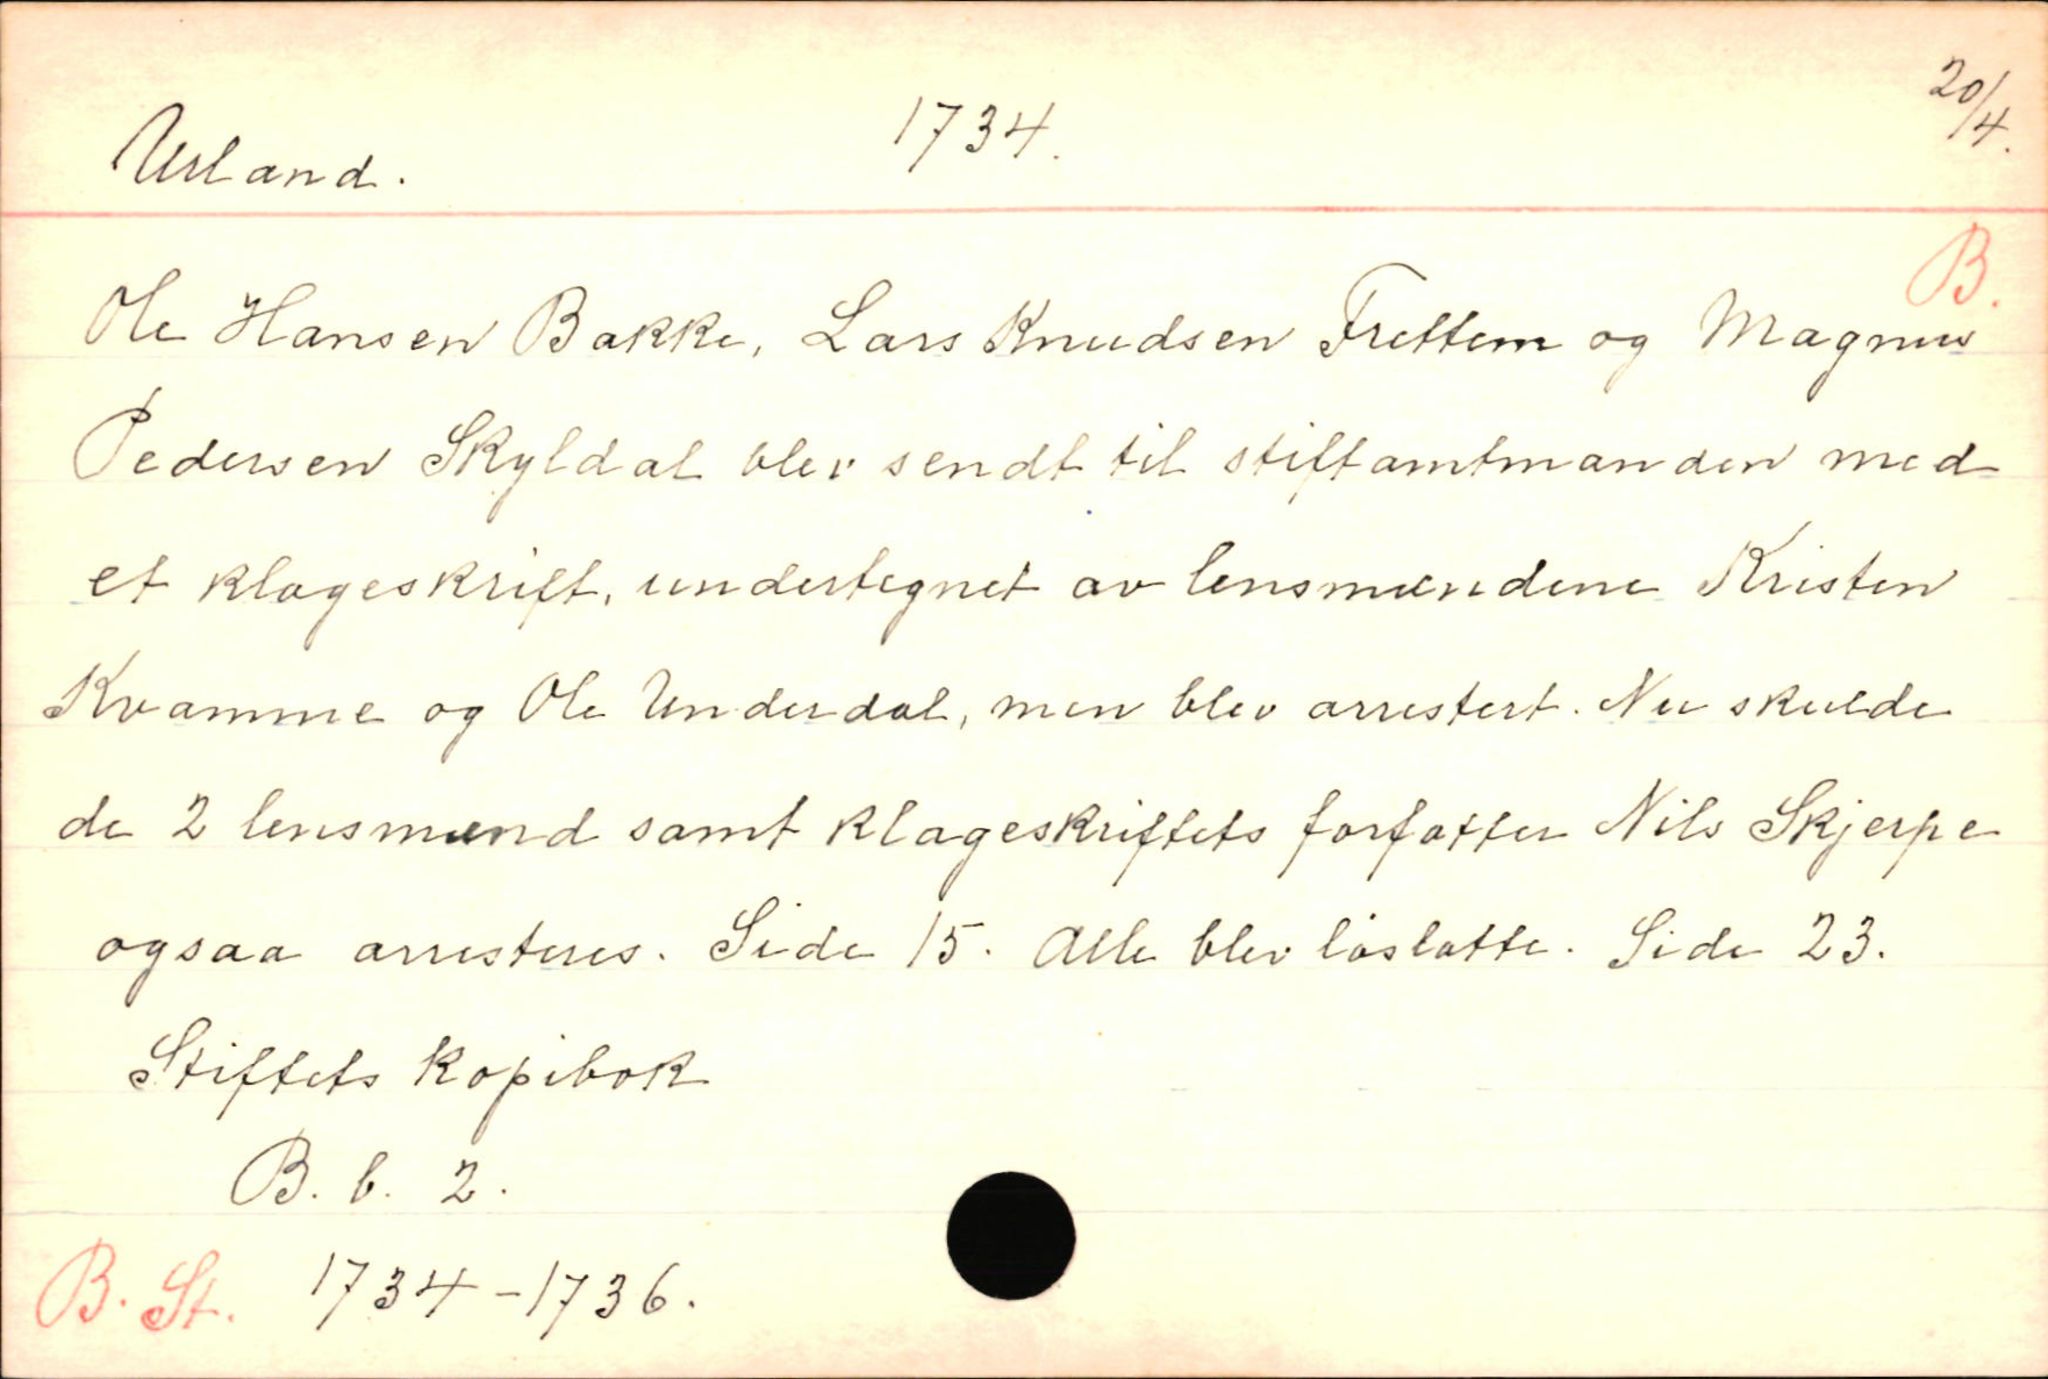 Urland. 1734. 20/4.
B.
Ole Hansen Bakke, Lars Knudsen Frettem og Magnus
Pedersen Skyldal blev sendt til stiftamtmanden med
et klageskrift, undertegnet av lensmændene Kristen
Kvamme og Ole Underdal, men blev arrestert. Nu skulde
de 2 lensmænd samt klageskriftets forfatter Nils Skjerpe
ogsaa arresteres. Side 15. Alle blev løslatte. Side 23.
Stiftets kopibok
B. b. 2.
B. St. 1734-1736.